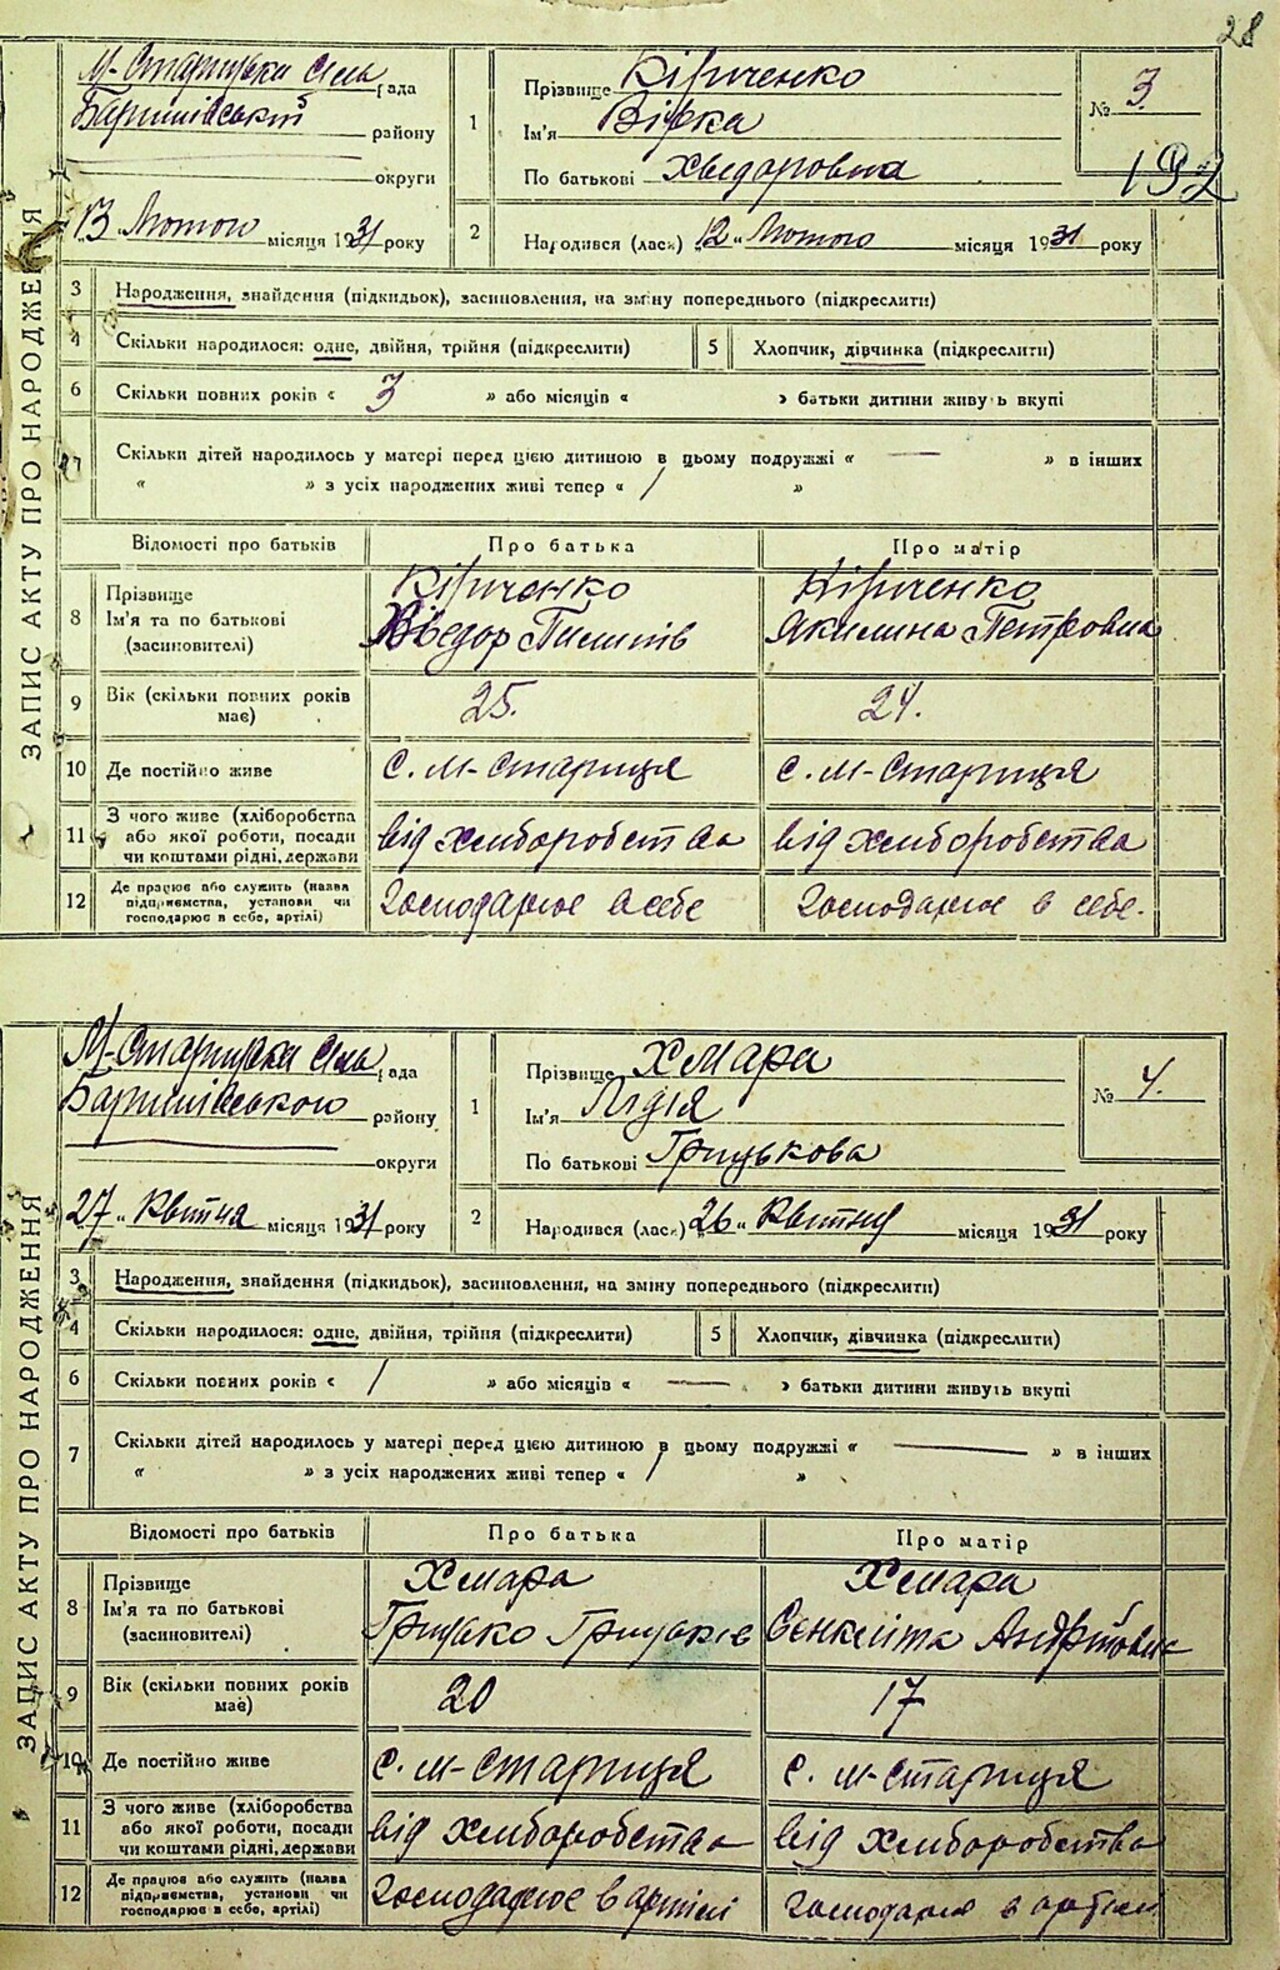 28
М-Старицька Сіль рада
Баришівський району
округи
"13" Лютого місяця 1931 року
1
Прізвище Кіриченко
Ім'я Вірка
По батькові Хведоровна
№ 3.
192
2
Народився (лась) "12" Лютого місяця 1931 року
ЗАПИС АКТУ ПРО НАРОДЖЕННЯ
3 Народження, знайдення (підкидьок), засиновлення, на зміну попереднього (підкреслити)
4 Скільки народилося: одне, двійня, трійня (підкреслити) 5 Хлопчик, дівчинка (підкреслити)
6 Скільки повних років « 3 » або місяців « » батьки дитини живуть вкупі
7 Скільки дітей народилось у матері перед цією дитиною в цьому подружжі « — » в інших
« » з усіх народжених живі тепер « 1 »
Відомості про батьків Про батька Про матір
8 Прізвище Кіриченко Кіриченко
Ім'я та по батькові Хведор Пилипів Якилина Петровна
(засиновителі)
9 Вік (скільки повних років має) 25. 24.
10 Де постійно живе с. М-Стариця с. М-Стариця
11 З чого живе (хліборобства
або якої роботи, посади від хліборобства від хліборобства
чи коштами рідні, держави
12 Де працює або служить (назва
підприємства, установи чи Господарює в себе Господарює в себе.
господарює в себе, артілі)
М-Старицька Сіль рада
Баришівського району
округи
"27" Квітня місяця 1931 року
1
Прізвище Хмара
Ім'я Лідія
По батькові Грицькова
№ 4.
2
Народився (лась) "26" Квітня місяця 1931 року
ЗАПИС АКТУ ПРО НАРОДЖЕННЯ
3 Народження, знайдення (підкидьок), засиновлення, на зміну попереднього (підкреслити)
4 Скільки народилося: одне, двійня, трійня (підкреслити) 5 Хлопчик, дівчинка (підкреслити)
6 Скільки повних років « 1 » або місяців « — » батьки дитини живуть вкупі
7 Скільки дітей народилось у матері перед цією дитиною в цьому подружжі « — » в інших
« » з усіх народжених живі тепер « 1 »
Відомості про батьків Про батька Про матір
8 Прізвище Хмара Хмара
Ім'я та по батькові Грицько Грицьків Андріївна
(засиновителі)
9 Вік (скільки повних років має) 20 17
10 Де постійно живе с. М-Стариця с. М-Стариця
11 З чого живе (хліборобства
або якої роботи, посади від хліборобства від хліборобства
чи коштами рідні, держави
12 Де працює або служить (назва
підприємства, установи чи Господарює в артілі Господарює в артілі
господарює в себе, артілі)